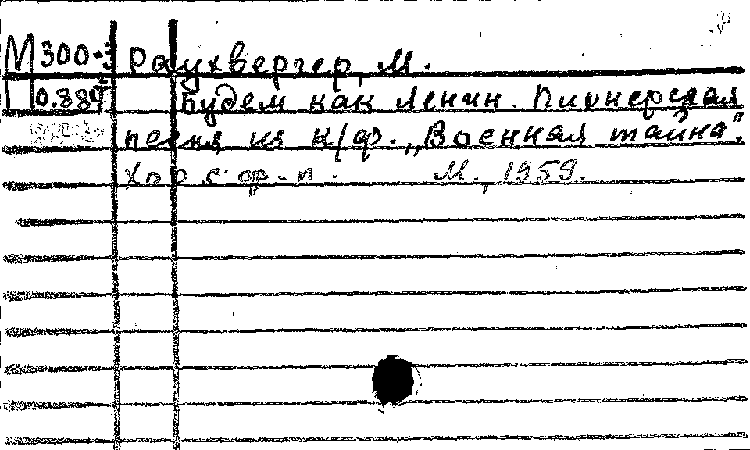 М 300-3 Раухвергер, М.
0.887 Будем как Ленин. Пионерская
песня из к/ф. „Военная тайна".
Хор с ф-п. М., 1959.